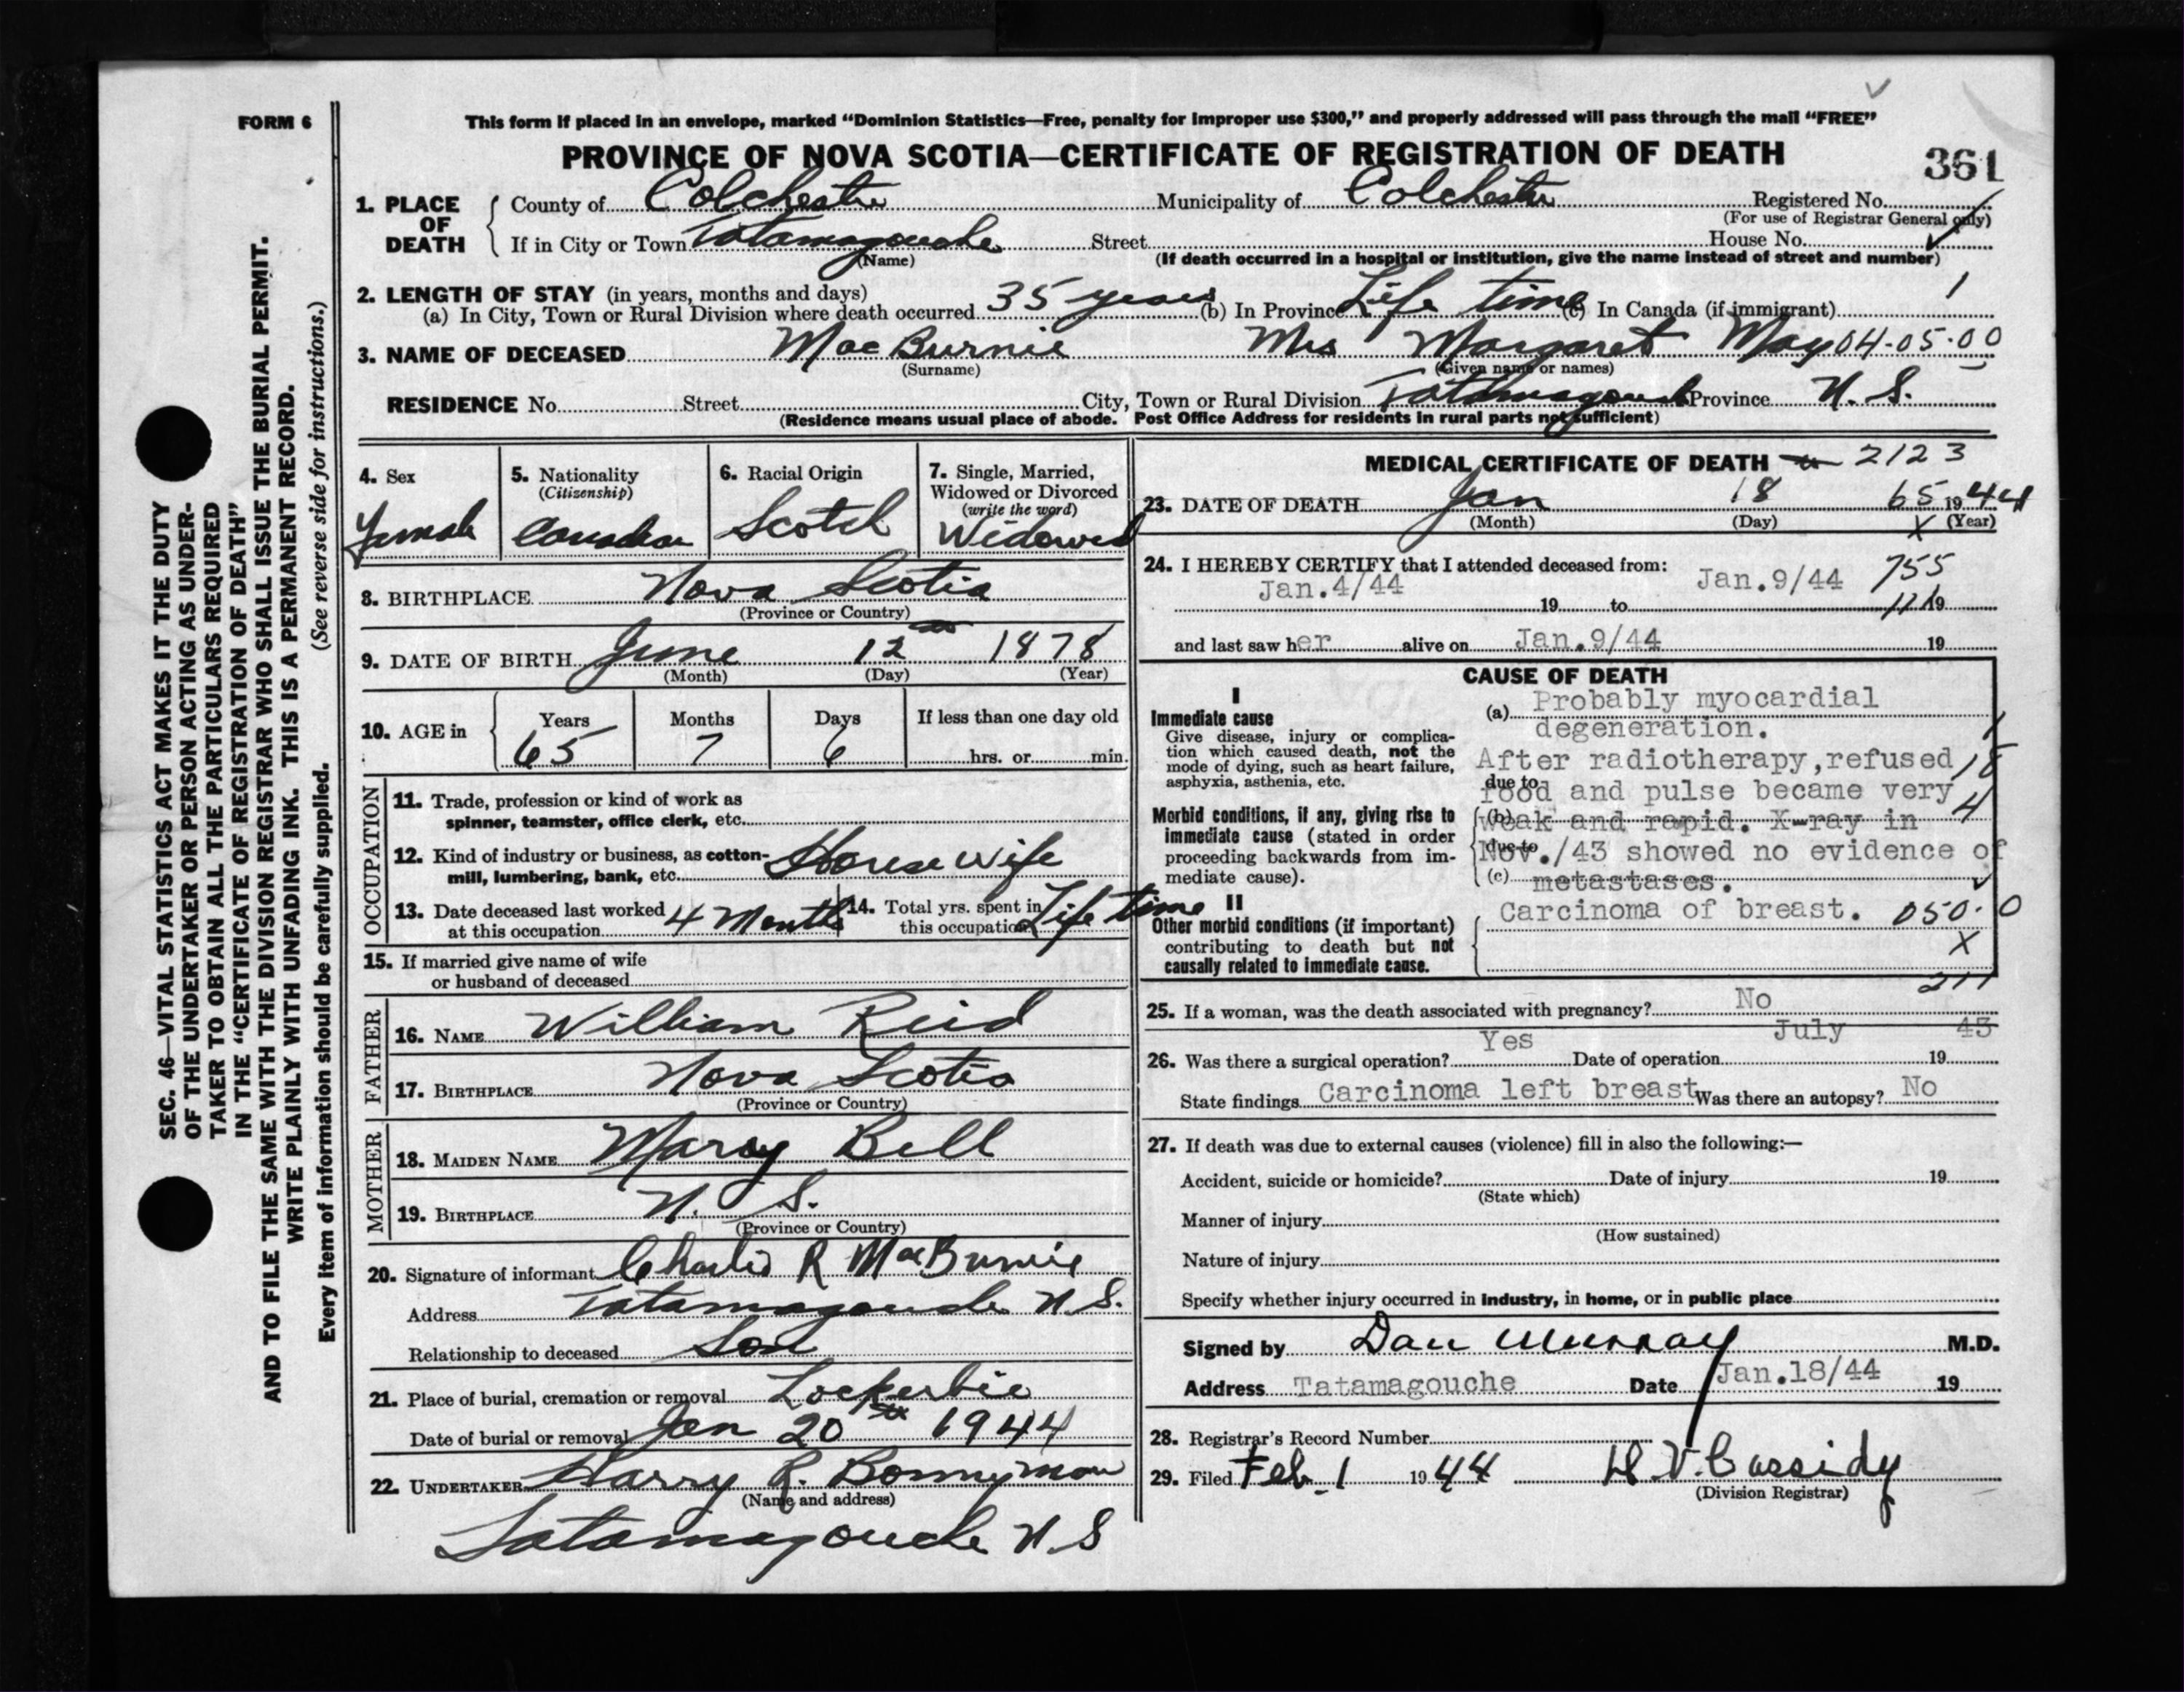 FORM 6
This form if placed in an envelope, marked “Dominion Statistics—Free, penalty for improper use $300,” and properly addressed will pass through the mail “FREE”
PROVINCE OF NOVA SCOTIA—CERTIFICATE OF REGISTRATION OF DEATH
361
1. PLACE OF DEATH
County of Colchester Municipality of Colchester Registered No.
(For use of Registrar General only)
If in City or Town Tatamagouche Street House No.
(Name) (If death occurred in a hospital or institution, give the name instead of street and number)
2. LENGTH OF STAY (in years, months and days)
(a) In City, Town or Rural Division where death occurred 35 years (b) In Province Life time (c) In Canada (if immigrant) 1
3. NAME OF DECEASED MacBurnie Mrs Margaret May 04-05-00
(Surname) (Given name or names)
RESIDENCE No. Street City, Town or Rural Division Tatamagouche Province N. S.
(Residence means usual place of abode. Post Office Address for residents in rural parts not sufficient)
4. Sex
Female
5. Nationality
(Citizenship)
Canadian
6. Racial Origin
Scotch
7. Single, Married,
Widowed or Divorced
(write the word)
Widowed
8. BIRTHPLACE Nova Scotia
(Province or Country)
9. DATE OF BIRTH June 12 1878
(Month) (Day) (Year)
10. AGE in
Years Months Days If less than one day old
65 7 6 hrs. or min.
OCCUPATION
11. Trade, profession or kind of work as
spinner, teamster, office clerk, etc.
12. Kind of industry or business, as cotton-
mill, lumbering, bank, etc. House wife
13. Date deceased last worked
at this occupation 4 Months
14. Total yrs. spent in
this occupation Life time
15. If married give name of wife
or husband of deceased
FATHER
16. NAME William Reid
17. BIRTHPLACE Nova Scotia
(Province or Country)
MOTHER
18. MAIDEN NAME Mary Bell
19. BIRTHPLACE N. S.
(Province or Country)
20. Signature of informant Charlie R MacBurnie
Address Tatamagouche N.S.
Relationship to deceased Son
21. Place of burial, cremation or removal Lockerbie
Date of burial or removal Jan 20th 1944
22. UNDERTAKER Harry R. Bonnyman
(Name and address)
Tatamagouche N.S
MEDICAL CERTIFICATE OF DEATH 2123
23. DATE OF DEATH Jan 18 65 1944
(Month) (Day) X (Year)
24. I HEREBY CERTIFY that I attended deceased from: 755
Jan.4/44 19 to Jan.9/44 19
and last saw her alive on Jan.9/44 19
CAUSE OF DEATH
I
Immediate cause
Give disease, injury or complica-
tion which caused death, not the
mode of dying, such as heart failure,
asphyxia, asthenia, etc.
Morbid conditions, if any, giving rise to
immediate cause (stated in order
proceeding backwards from im-
mediate cause).
II
Other morbid conditions (if important)
contributing to death but not
causally related to immediate cause.
(a) Probably myocardial
degeneration. 1
After radiotherapy,refused 18
due to
food and pulse became very 4
(b)
weak and rapid. X-ray in
due to
Nov./43 showed no evidence of
(c) metastases.
Carcinoma of breast. 050.0
X
211
25. If a woman, was the death associated with pregnancy? No
26. Was there a surgical operation? Yes Date of operation July 1943
State findings Carcinoma left breast Was there an autopsy? No
27. If death was due to external causes (violence) fill in also the following:—
Accident, suicide or homicide? Date of injury 19
(State which)
Manner of injury
(How sustained)
Nature of injury
Specify whether injury occurred in industry, in home, or in public place
Signed by Dan Murray M.D.
Address Tatamagouche Date Jan.18/44 19
28. Registrar's Record Number
29. Filed Feb. 1 1944 H.V. Cassidy
(Division Registrar)
SEC. 46—VITAL STATISTICS ACT MAKES IT THE DUTY
OF THE UNDERTAKER OR PERSON ACTING AS UNDER-
TAKER TO OBTAIN ALL THE PARTICULARS REQUIRED
IN THE “CERTIFICATE OF REGISTRATION OF DEATH”
AND TO FILE THE SAME WITH THE DIVISION REGISTRAR WHO SHALL ISSUE THE BURIAL PERMIT.
WRITE PLAINLY WITH UNFADING INK. THIS IS A PERMANENT RECORD.
Every item of information should be carefully supplied. (See reverse side for instructions.)